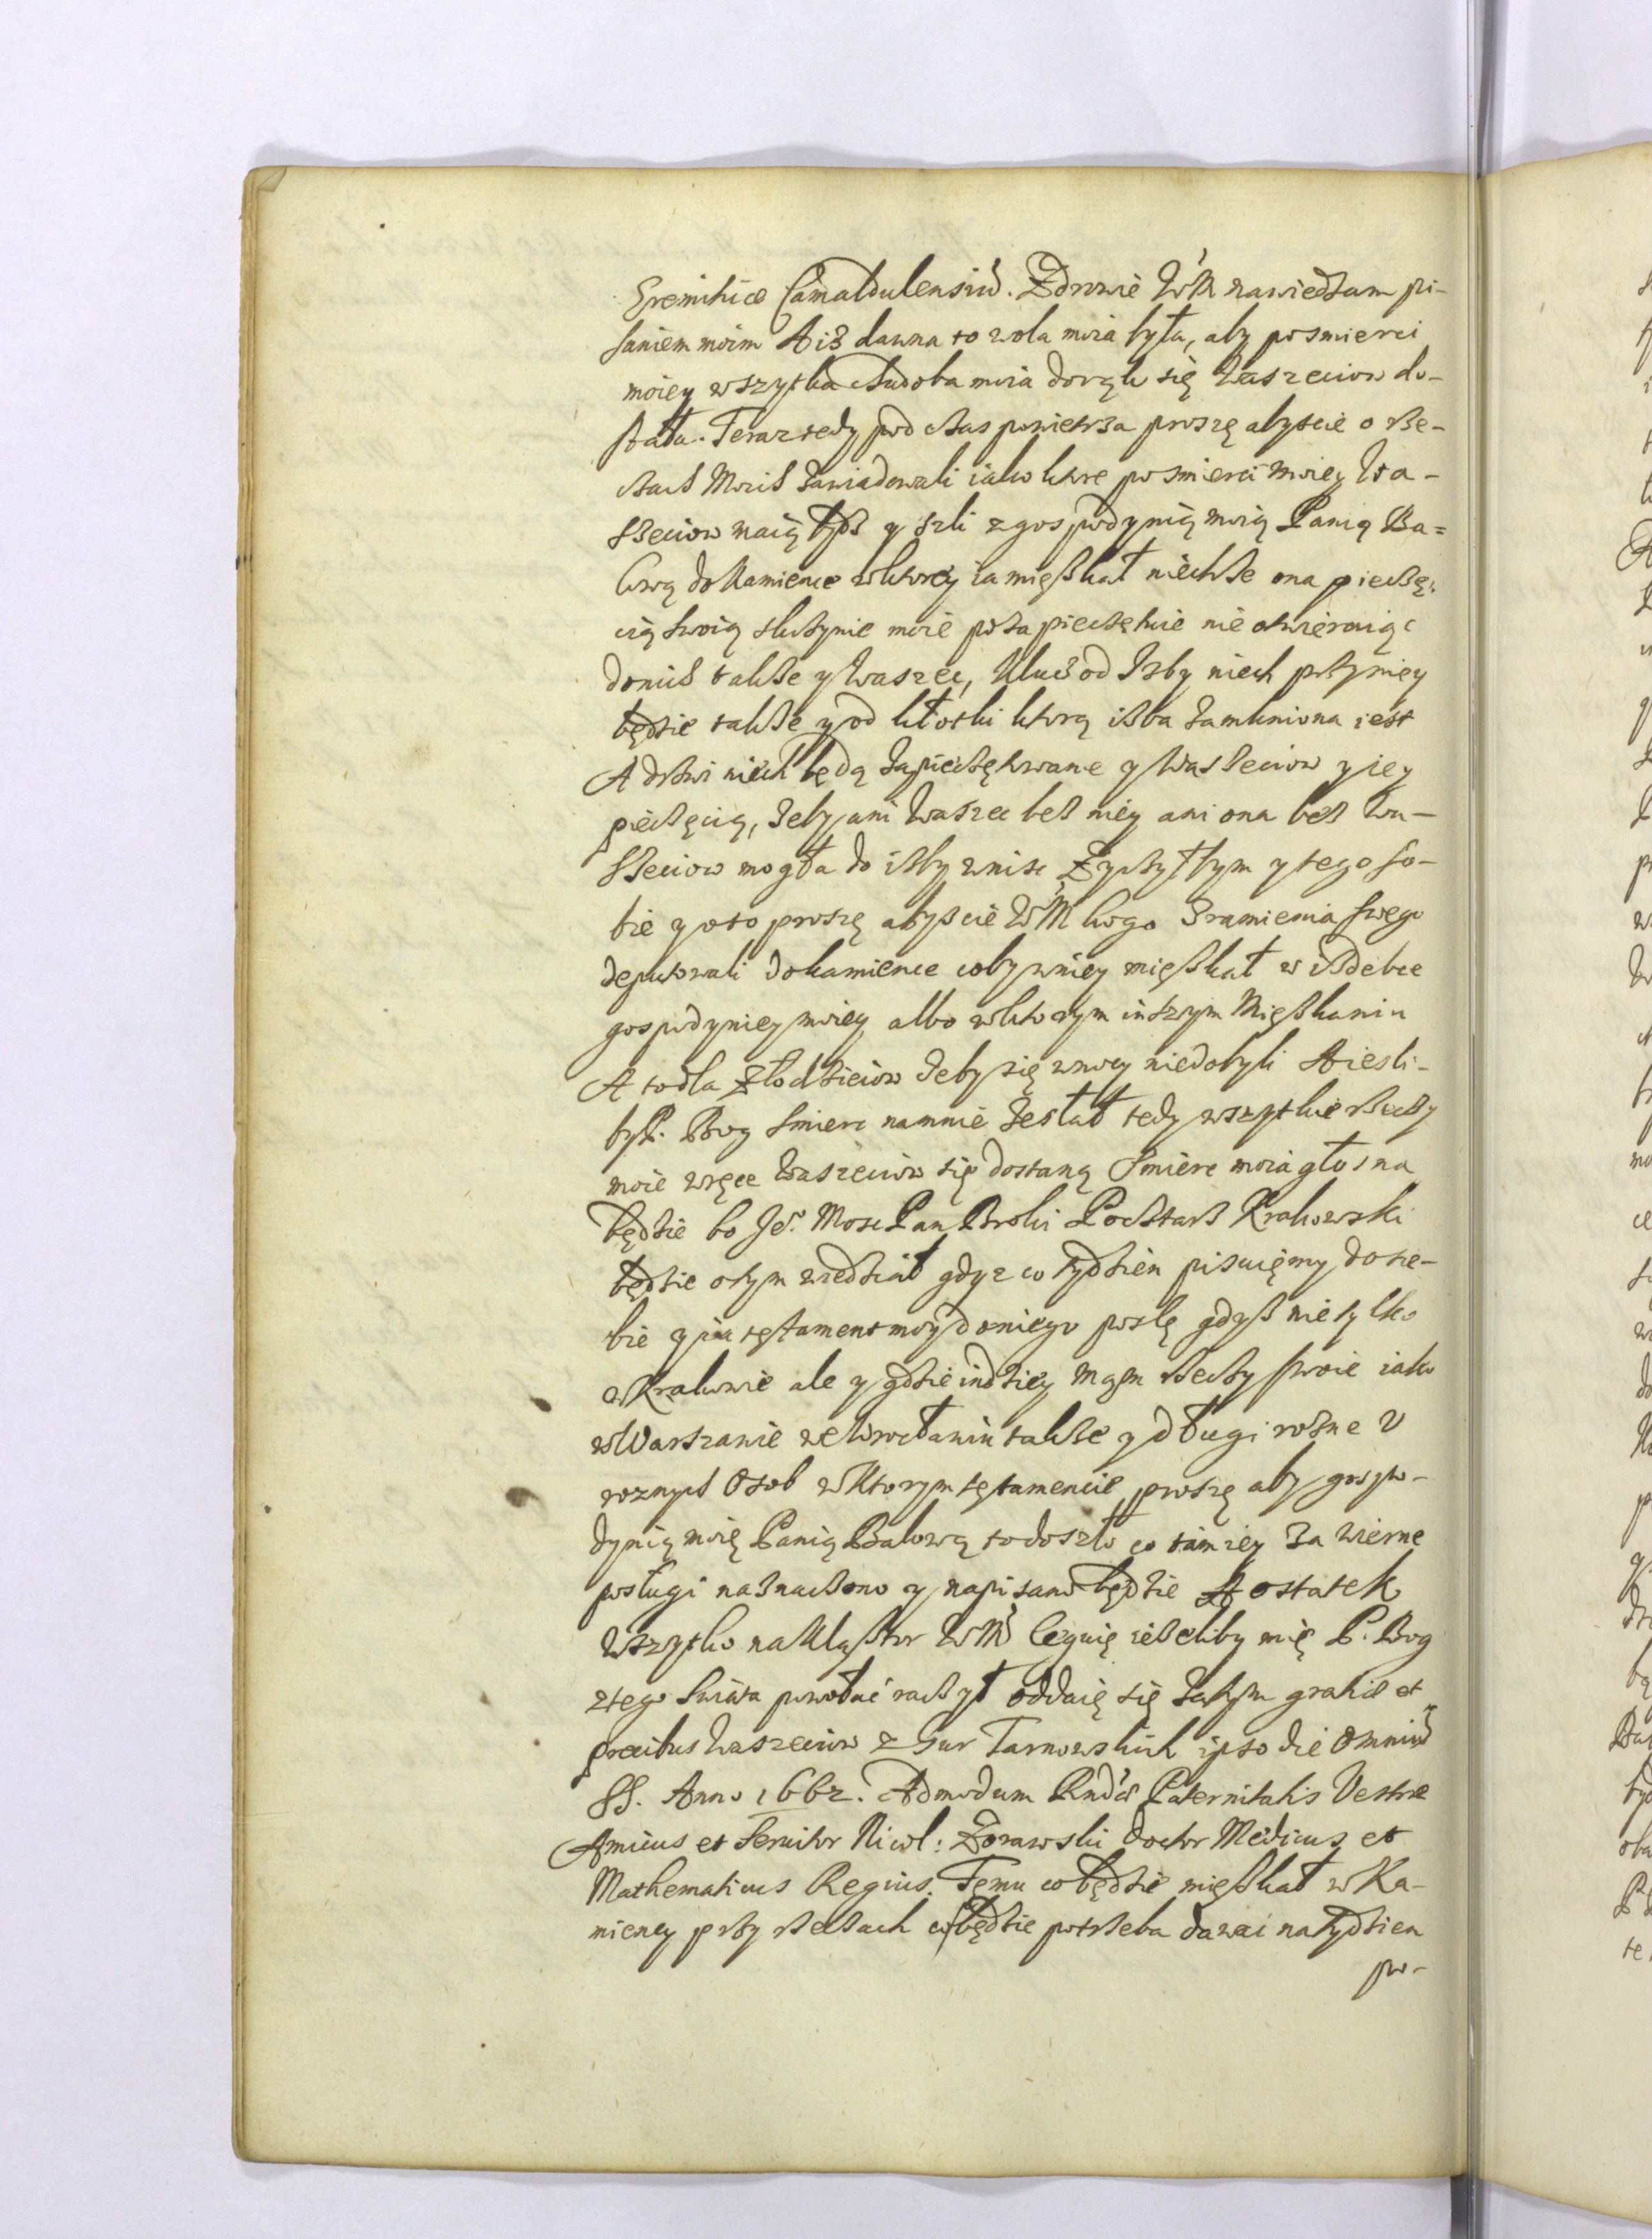 Eremitice Camaldulensiu. Zdrowie WM nawiedzam pi-
saniem moim A iz dawna to wola moia była, aby po smierci
moiey wszytka chudoba moia do rąk się Waszeciow do-
stała. Teraz tedy pod czas powietrza proszę abyscie o rze-
czach Moich zawiadowali iako ktore po smierci moiey Wa-
szeciow maią bydz y szli z gospodynią moią Panią Ba-
lową do kamience w ktorey ia mięszkał niechze ona pieczę-
cią swoią skrzynie moie poza pieczętuie nie otwieraiąc
do nich takze y Waszec, klucz od Izby niech przy niey
będzie takze y od kłotki ktorą izba zamkniona iest
A drzwi niech będą zapieczętowane y Waszeciow y iey
pieczęcią, zeby ani Waszec bez niey ani ona bez Wa-
szeciow mogła do izby wnisc Zyczyłbym y tego so-
bie y o to proszę abyscie WM kogo z ramienia swego
deputowali do kamience coby w niey mięszkał w izdebce
gospodyniey moiey albo w ktorym inszym Mięszkaniu
A to dla Złodzieiow zeby się w nocy niedobyli A iesli-
by P. Bog smierc na mnie zesłał tedy wszytkie rzeczy
moie w ręce Waszeciow się dostaną Smierc moia głosna
będzie bo Je. Mosc Pan Broski Podstarz Krakowski
będzie o tym wiedział gdyz co tydzien pisuięmy do sie-
bie y ia tęstament moy do niego poslę gdysz nie tylko
w Krakowie ale y gdzie indziey mąm rzeczy swoie iako
w Warszawie we Wrocławiu takze y długi rozne v
roznych Osob w ktorym tęstamencie proszę aby gospo-
dynią moię Panią Balową to doszło co iam iey za wierne
posługi naznaczono y napisano będzie A ostatek
wszytko na Klasztor WM leguię iezeliby mię P. Bog
z tego swiata powołać raczył oddaię się zatym gratiæ et
precibus Waszeciow z Gur Tarnowskich ipso die Omniu
SS. Anno 1662. Admodum Rndæ Paternitatis Vestræ
Amicus et Seruitor Nicol: Zorawski Doctor Medicus et
Mathematicus Regius. Temu co będzie mięszkał w Ka-
miency przy rzeczach co będzie potrzeba dawać na tydzien
po-